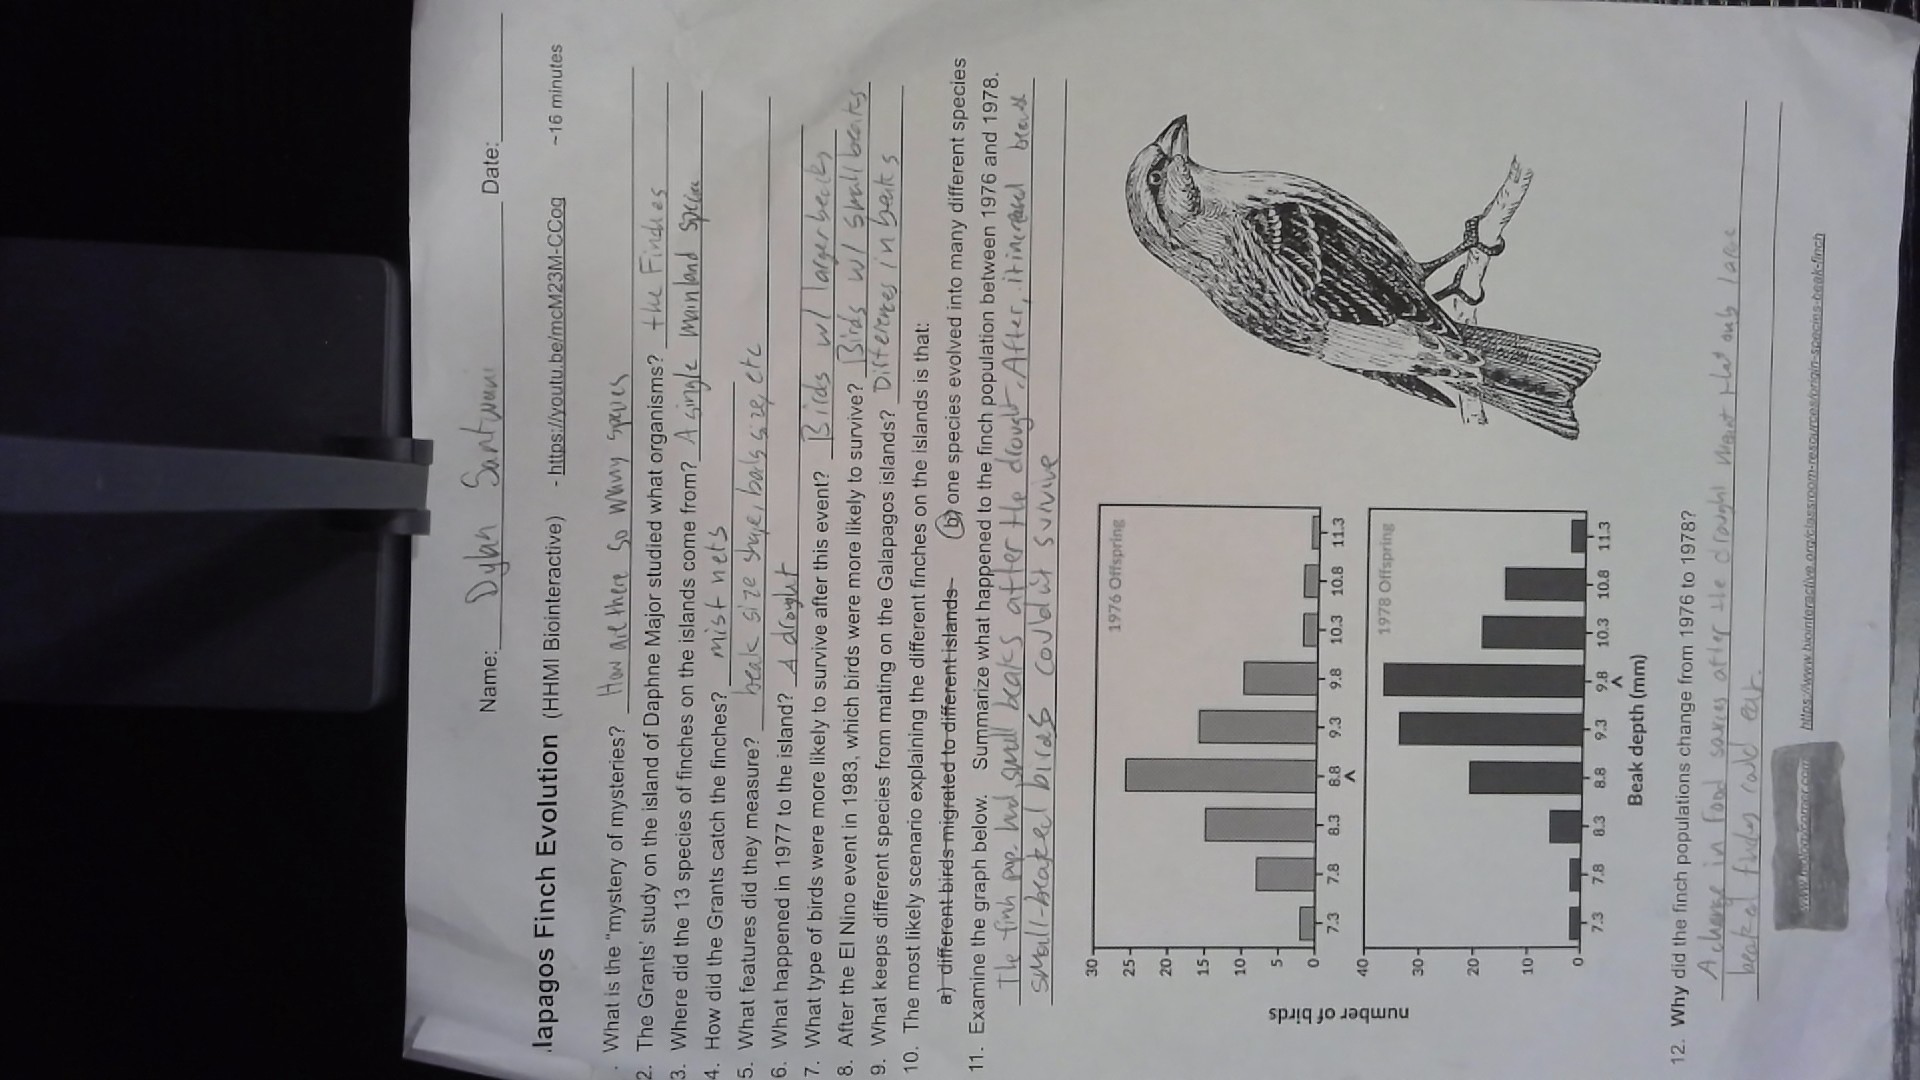 Name: Dylan Date:
lapagos Finch Evolution (HHMI Biointeractive) - https://youtu.be/mcM23M-CCog ~16 minutes
. What is the "mystery of mysteries? How are there so many species
2. The Grants' study on the island of Daphne Major studied what organisms? the Finches
3. Where did the 13 species of finches on the islands come from? A single mainland Species
4. How did the Grants catch the finches? mist nets
5. What features did they measure? beak size shape, body size, etc
6. What happened in 1977 to the island? A drought
7. What type of birds were more likely to survive after this event? Birds w/ larger becks
8. After the El Nino event in 1983, which birds were more likely to survive? Birds w/ small beaks
9. What keeps different species from mating on the Galapagos islands? Differences in beaks
10. The most likely scenario explaining the different finches on the islands is that:
a) different birds migrated to different islands b) one species evolved into many different species
11. Examine the graph below. Summarize what happened to the finch population between 1976 and 1978.
The finh pop. had small beaks after the drought. After, it increased
small-beaked birds could'nt survive
number of birds
1976 Offspring
30
25
20
15
10
5
0
7.3 7.8 8.3 8.8 9.3 9.8 10.3 10.8 11.3
^
1978 Offspring
40
30
20
10
0
7.3 7.8 8.3 8.8 9.3 9.8 10.3 10.8 11.3
^
Beak depth (mm)
12. Why did the finch populations change from 1976 to 1978?
A change in food sources after the drought meant that only large
beaked could eat.
https://www.biointeractive.org/classroom-resources/origin-species-beak-finch